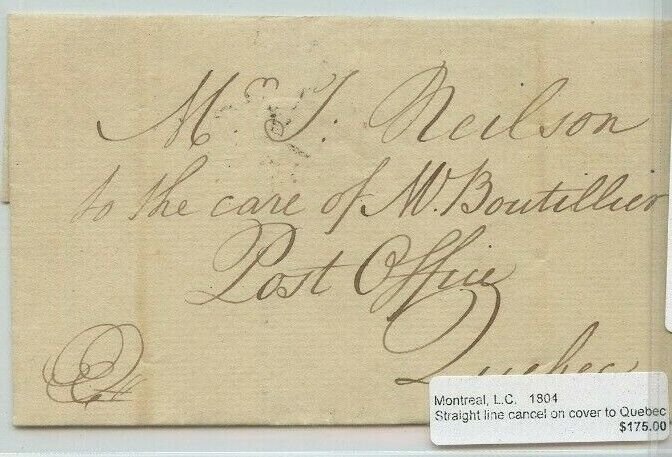 Mr. J. Neilson
to the care of Mr. Boutillier
Post Office
Quebec
Montreal, L.C. 1804
Straight line cancel on cover to Quebec
$175.00